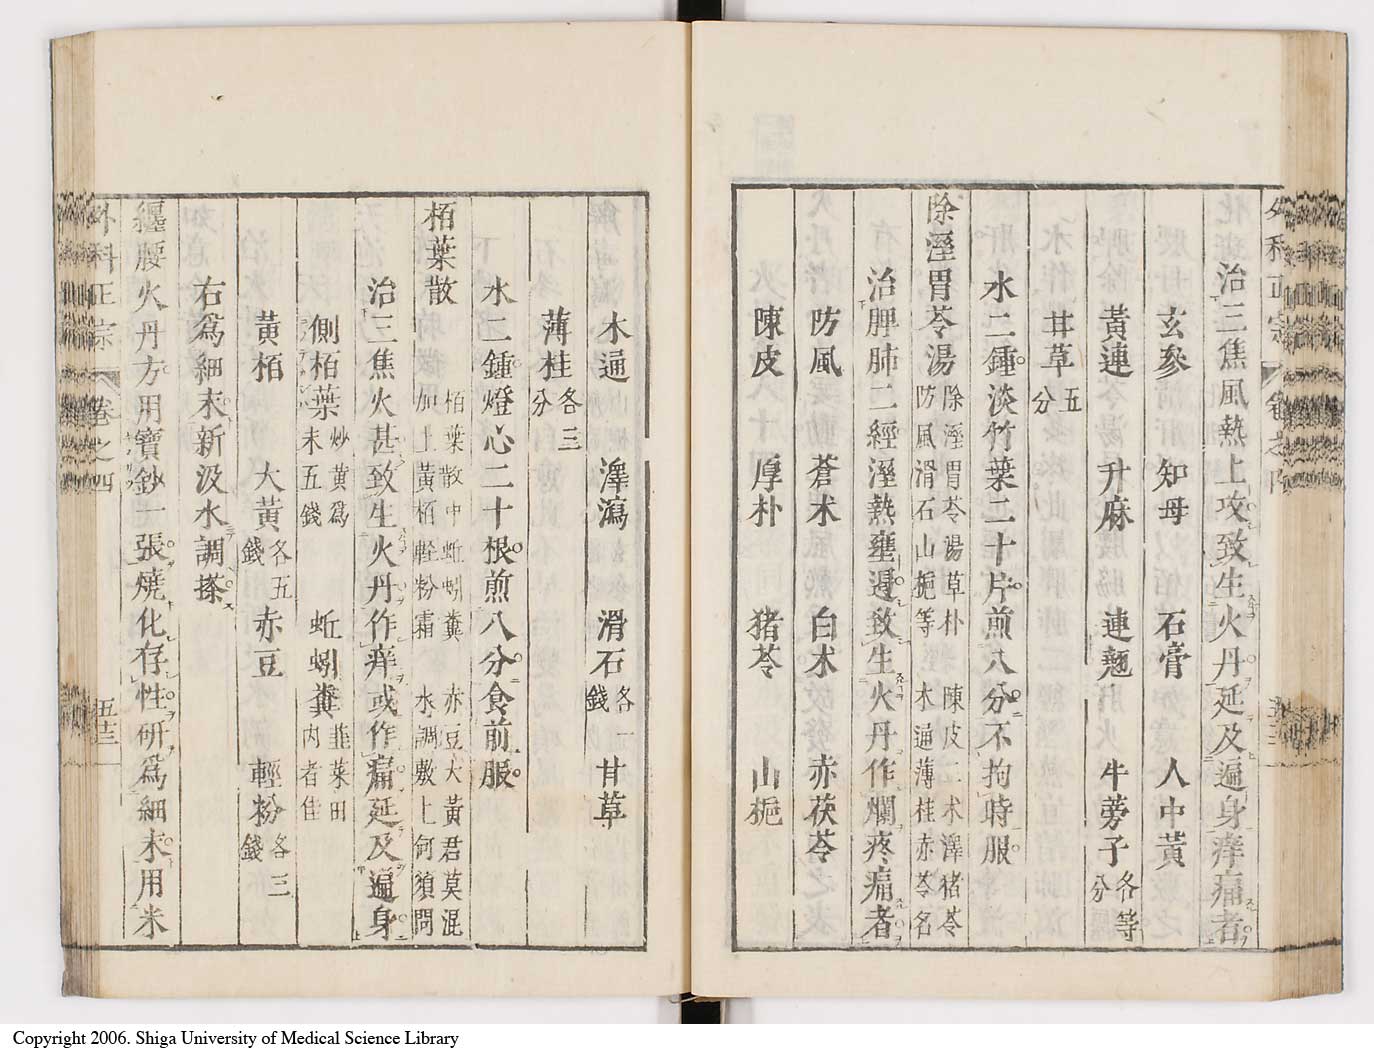 治三焦風熱上攻致生火丹延及遍身痒痛者
玄參 知母 石膏 人中黃
黃連 升麻 連翹 牛蒡子各等分
甘草五分
水二鍾淡竹葉二十片煎八分不拘時服
除溼胃苓湯 除溼胃苓湯草朴 陳皮二朮澤猪苓 防風滑石山梔等 木通薄桂赤苓名
治脾肺二經溼熱壅遏致生火丹作爛疼痛者
防風 蒼朮 白朮 赤茯苓
陳皮 厚朴 猪苓 山梔
木通 澤瀉 滑石各一錢 甘草
薄桂各三分
水二鍾燈心二十根煎八分食前服
栢葉散 栢葉散中蚯蚓糞 赤豆大黃君莫混 加上黃栢軽粉霜 水調敷上何須問
治三焦火甚致生火丹作痒或作痛延及遍身
側栢葉炒黃爲末五錢 蚯蚓糞韭菜田内者佳
黃栢 大黃各五錢 赤豆 輕粉各三錢
右爲細末新汲水調搽
纏腰火丹方用寶鈔一張燒化存性研爲細末用米
外科正宗 卷之四 五十三
Copyright 2006. Shiga University of Medical Science Library